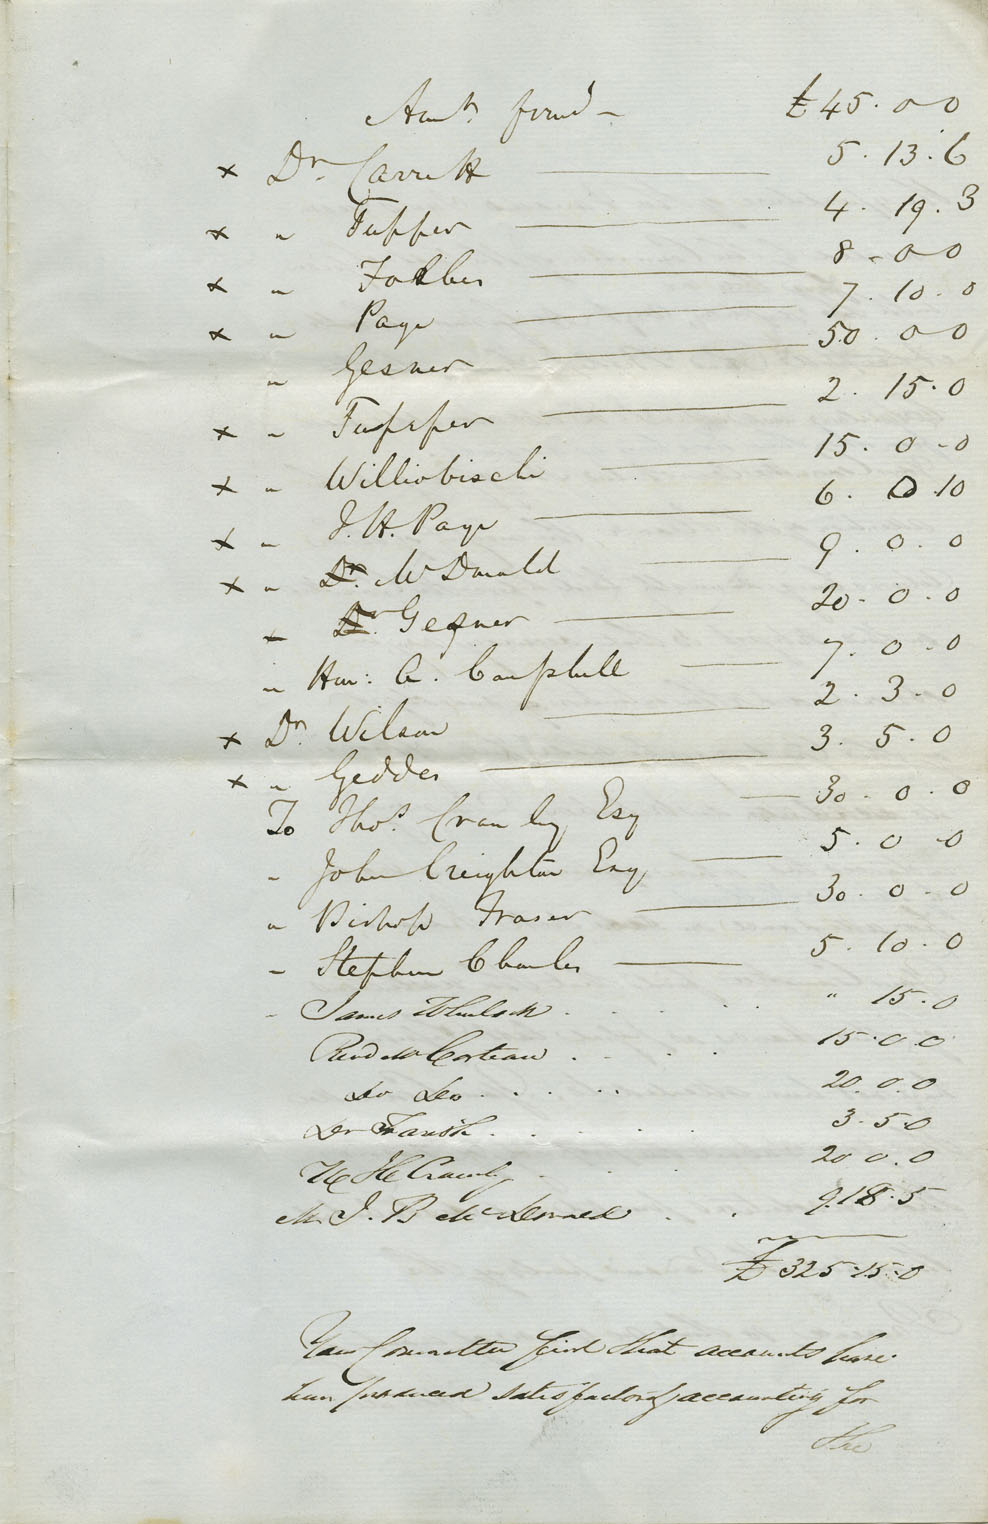 Amt. forwd — £45.0-0
x Dr. Carritt — 5.13.6
x " Tupper — 4.19.3
x " Forbes — 8-0-0
x " Page — 7.10.0
" Gesner — 50.0-0
x " Tupper — 2.15.0
x " — 15.0-0
x " J. H. Page — 6.0.10
x " Dr. McDonald — 9.0.0
" Dr. Gesner — 20-0.0
" Hon: C. Campbell — 7.0-0
x Dr. Wilson — 2.3.0
x " Geddes — 3.5.0
To Thos. Crawley Esq — 30.0.0
" John Creighton Esq — 5.0-0
" Bishop Fraser — 30.0-0
" Stephen Charles — 5.10.0
" James . . . . " 15.0
Revd Mr . . . 15.0.0
Do Do . . . . 20.0.0
Dr Farish . . . . 3.5.0
H Crawly . . . 20 0.0
Mr J. B McDonald . . 9.18.5
£325.15.0
Your Committee find that accounts have
been produced satisfactorily accounting for
the